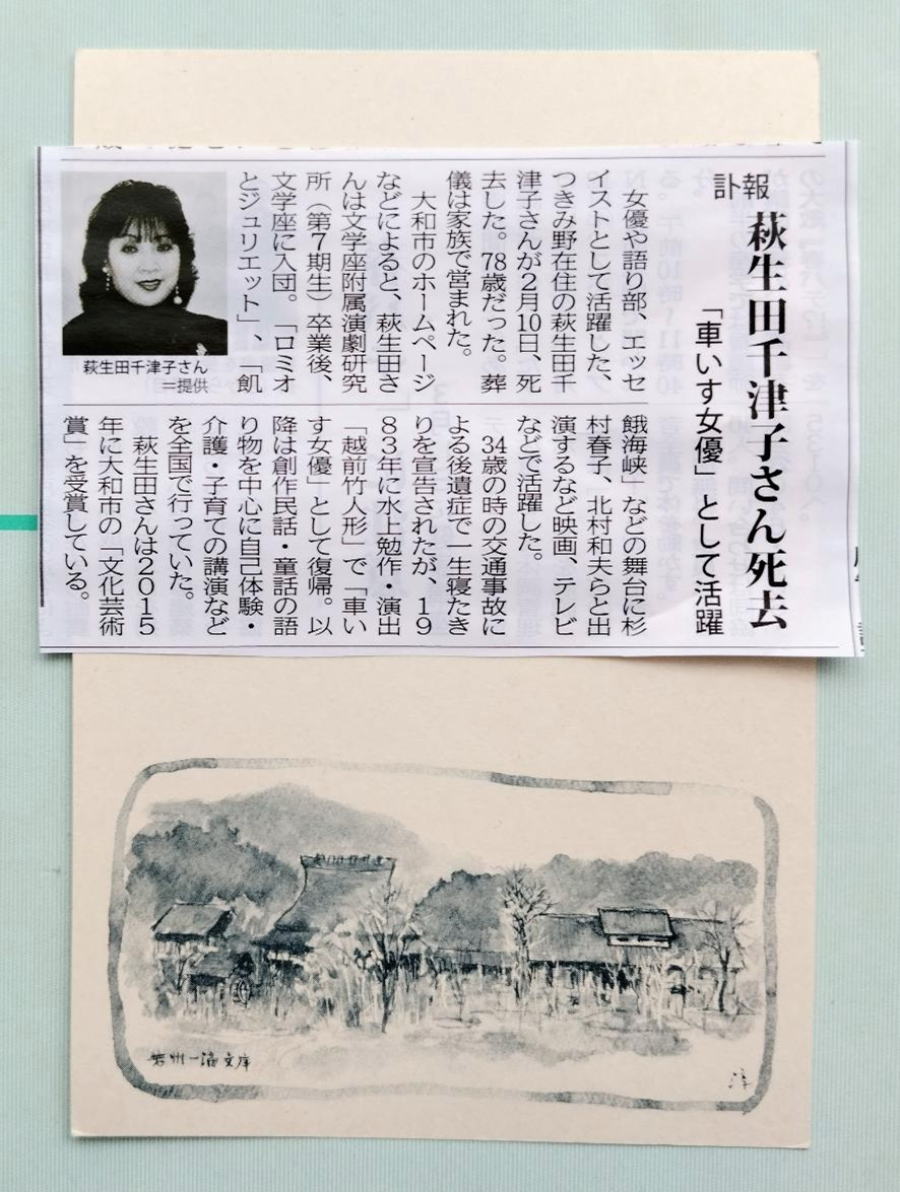 訃報
萩生田千津子さん死去
「車いす女優」として活躍
女優や語り部、エッセ
イストとして活躍した、
つきみ野在住の萩生田千
津子さんが２月10日、死
去した。78歳だった。葬
儀は家族で営まれた。
大和市のホームページ
などによると、萩生田さ
んは文学座附属演劇研究
所（第７期生）卒業後、
文学座に入団。「ロミオ
とジュリエット」、「飢
餓海峡」などの舞台に杉
村春子、北村和夫らと出
演するなど映画、テレビ
などで活躍した。
34歳の時の交通事故に
よる後遺症で一生寝たき
りを宣告されたが、１９
８３年に水上勉作・演出
「越前竹人形」で「車い
す女優」として復帰。以
降は創作民話・童話の語
り物を中心に自己体験・
介護・子育ての講演など
を全国で行っていた。
萩生田さんは２０１５
年に大和市の「文化芸術
賞」を受賞している。
萩生田千津子さん
＝提供
若州一滴文庫